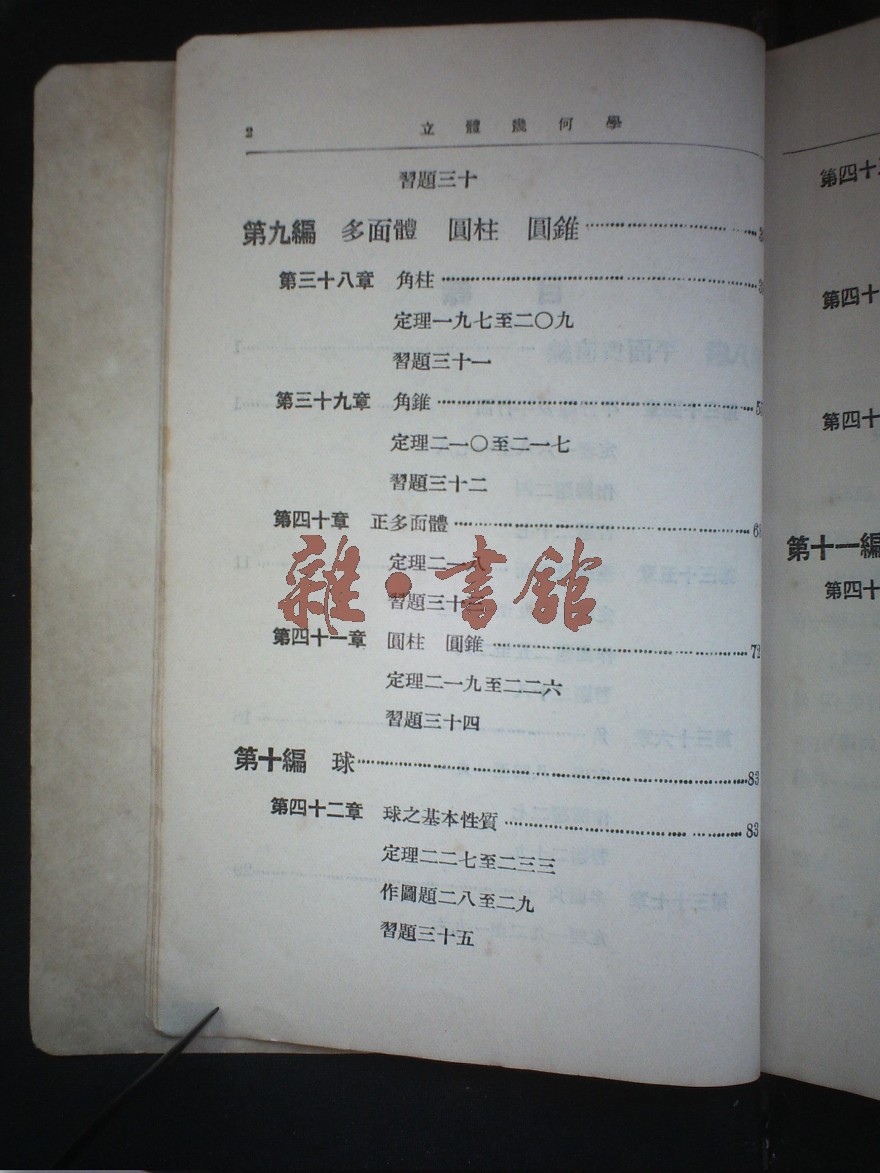 2 立體幾何學
習題三十
第九編 多面體 圓柱 圓錐
第三十八章 角柱
定理一九七至二〇九
習題三十一
第三十九章 角錐
定理二一〇至二一七
習題三十二
第四十章 正多面體
定理二一八
習題三十三
第四十一章 圓柱 圓錐 72
定理二一九至二二六
習題三十四
第十編 球 83
第四十二章 球之基本性質 83
定理二二七至二三三
作圖題二八至二九
習題三十五
雜·書館
第四十
第四十
第四十
第十一編
第四十